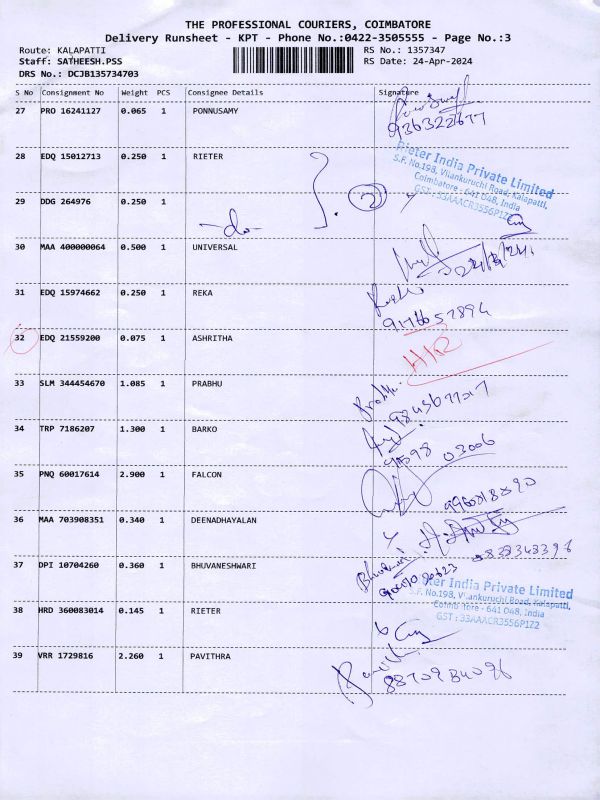 THE PROFESSIONAL COURIERS, COIMBATORE
Delivery Runsheet - KPT - Phone No.:0422-3505555 - Page No.:3
Route: KALAPATTI
RS No.: 1357347
Staff: SATHEESH.PSS
RS Date: 24-Apr-2024
DRS No.: DCJB135734703
S No Consignment No Weight PCS Consignee Details Signature
27 PRO 16241127 0.065 1 PONNUSAMY
28 EDQ 15012713 0.250 1 RIETER
Rieter India Private Limited
S.F. No.198, Vilankuruchi Road, Kalapatti,
Coimbatore - 641 048, India
GST : 33AAACR3556P1Z2
29 DDG 264976 0.250 1
-do-
2
30 MAA 400000064 0.500 1 UNIVERSAL
31 EDQ 15974662 0.250 1 REKA
32 EDQ 21559200 0.075 1 ASHRITHA
33 SLM 344454670 1.085 1 PRABHU
34 TRP 7186207 1.300 1 BARKO
35 PNQ 60017614 2.900 1 FALCON
36 MAA 703908351 0.340 1 DEENADHAYALAN
37 DPI 10704260 0.360 1 BHUVANESHWARI
38 HRD 360083014 0.145 1 RIETER
India Private Limited
S.F. No.198, Vilankuruchi Road, Kalapatti,
641 048, India
GST : 33AAACR3556P1Z2
39 VRR 1729816 2.260 1 PAVITHRA